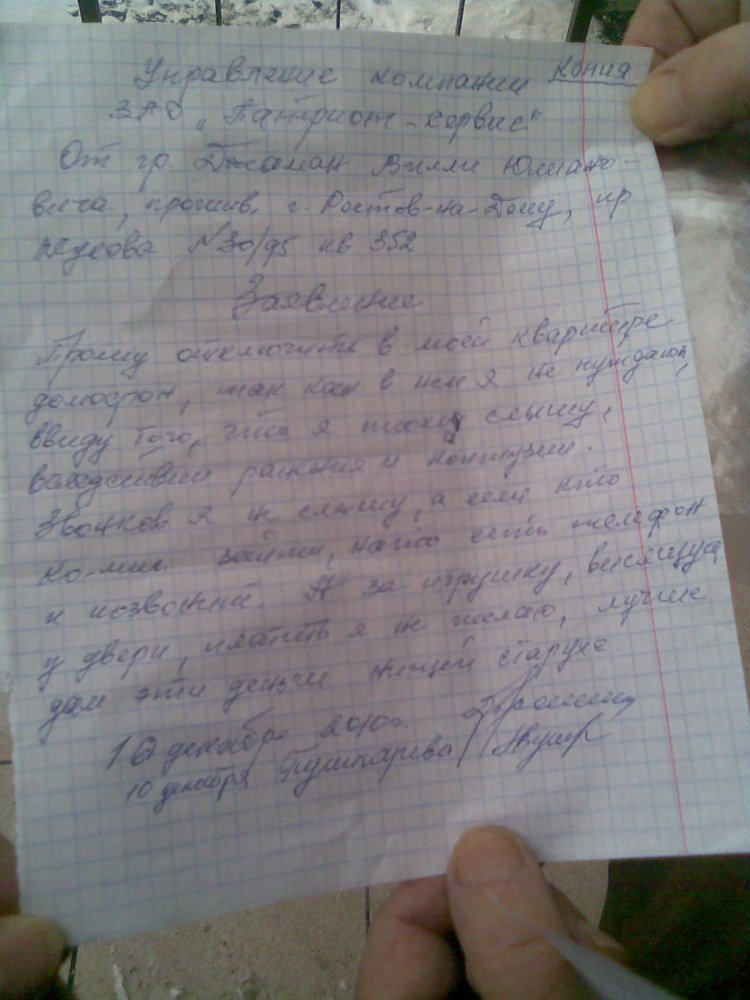 Управление компании Копия
ЗАО „Патриот-сервис“
От гр. Джаман Вилли Юлиано-
вича, прожив. г. Ростов-на-Дону, пр
Жукова №30/95 кв 352
Заявление
Прошу отключить в моей квартире
домофон, так как в нём я не нуждаюсь,
ввиду того, что я плохо слышу,
вследствии ранения и контузии.
Звонков я не слышу, а если кто
ко мне зайти, на то есть телефон
и позвонит. А за игрушку, висящую
у двери, платить я не желаю, лучше
дам эти деньги нищей старухе.
10 декабря 2010г.
10 декабря Пушкарева